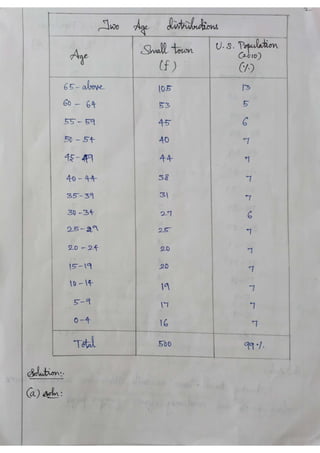 Two Age distributions
Age Small town (f) U.S. Population (2010) (%)
65-above 105 13
60 - 64 53 5
55 - 59 45 6
50 - 54 40 7
45-49 44 7
40-44 38 7
35-39 31 7
30-34 27 6
25-29 25 7
20-24 20 7
15-19 20 7
10-14 19 7
5-9 17 7
0-4 16 7
Total 500 99%
Solution:-
(a) soln: